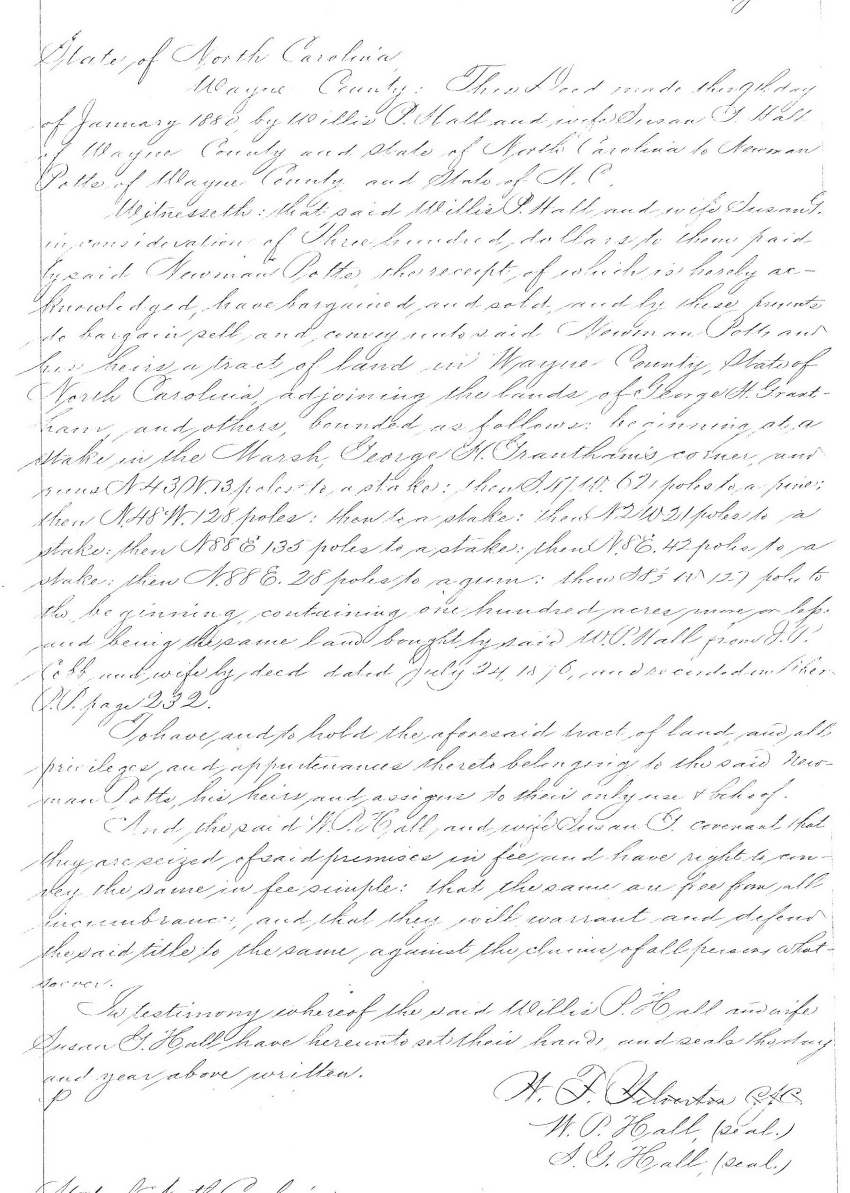 State of North Carolina
Wayne County: This Deed made this 9th day
of January 188 by Willis P. Hall and wife Susan G. Hall
of Wayne County and State of North Carolina to Newman
Potts of Wayne County and State of N. C.
Witnesseth: that said Willis P. Hall and wife Susan G.
in consideration of Three hundred dollars to them paid
by said Newman Potts, the receipt of which is hereby ac-
knowledged, have bargained and sold, and by these presents
do bargain, sell, and convey unto said Newman Potts and
his heirs a tract of land in Wayne County, State of
North Carolina, adjoining the lands of George H. Grant-
ham, and others, bounded as follows: beginning at a
stake in the Marsh, George H. Grantham's corner, and
runs N 43 W. 13 poles to a stake: then S. 47 W. 62 poles to a pine:
then N. 48 W. 128 poles: then to a stake: then N 2 W 21 poles to a
stake: then N 88 E 135 poles to a stake: then N. 8 E. 42 poles to a
stake: then N. 88 E. 28 poles to a gum: then W 127 poles to
the beginning, containing one hundred acres more or less.
and being the same land bought by said W. P. Hall from J. P.
Cobb and wife by deed dated July 24, 1876, and recorded in Liber
P.P. page 232.
To have and to hold the aforesaid tract of land, and all
privileges, and appurtenances thereto belonging to the said New-
man Potts, his heirs and assigns to their only use & behoof.
And the said W. P. Hall, and wife Susan G. covenant that
they are seized of said premises in fee and have right to con-
vey the same in fee simple: that the same are free from all
incumbrances, and that they will warrant and defend
the said title to the same against the claims of all persons what-
soever.
In testimony whereof the said Willis P. Hall and wife
Susan G. Hall have hereunto set their hands and seals the day
and year above written.
W. P. Hall, (seal.)
S. G. Hall, (seal.)